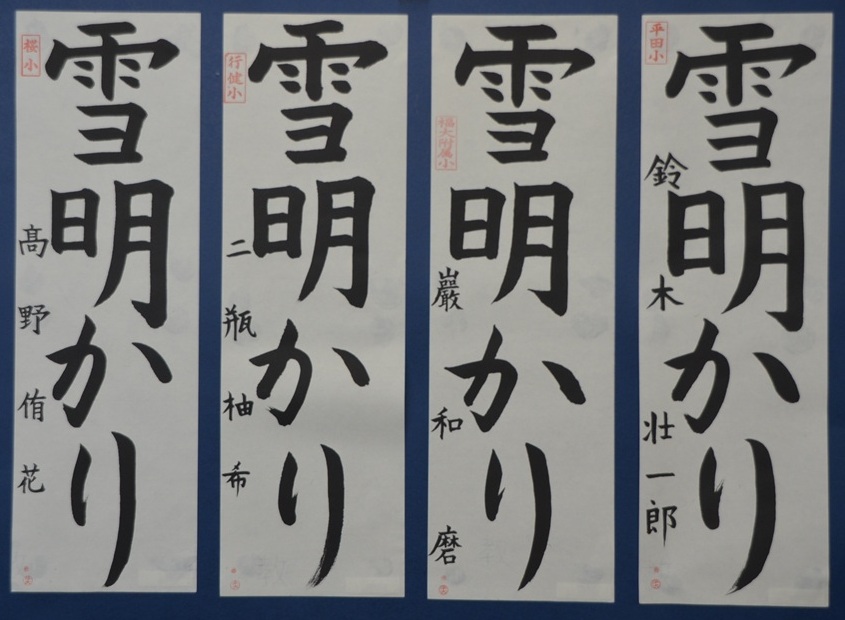 雪明かり
鈴木壮一郎
平田小
雪明かり
巖和磨
福大附属小
雪明かり
二瓶柚希
行健小
雪明かり
高野侑花
桜小